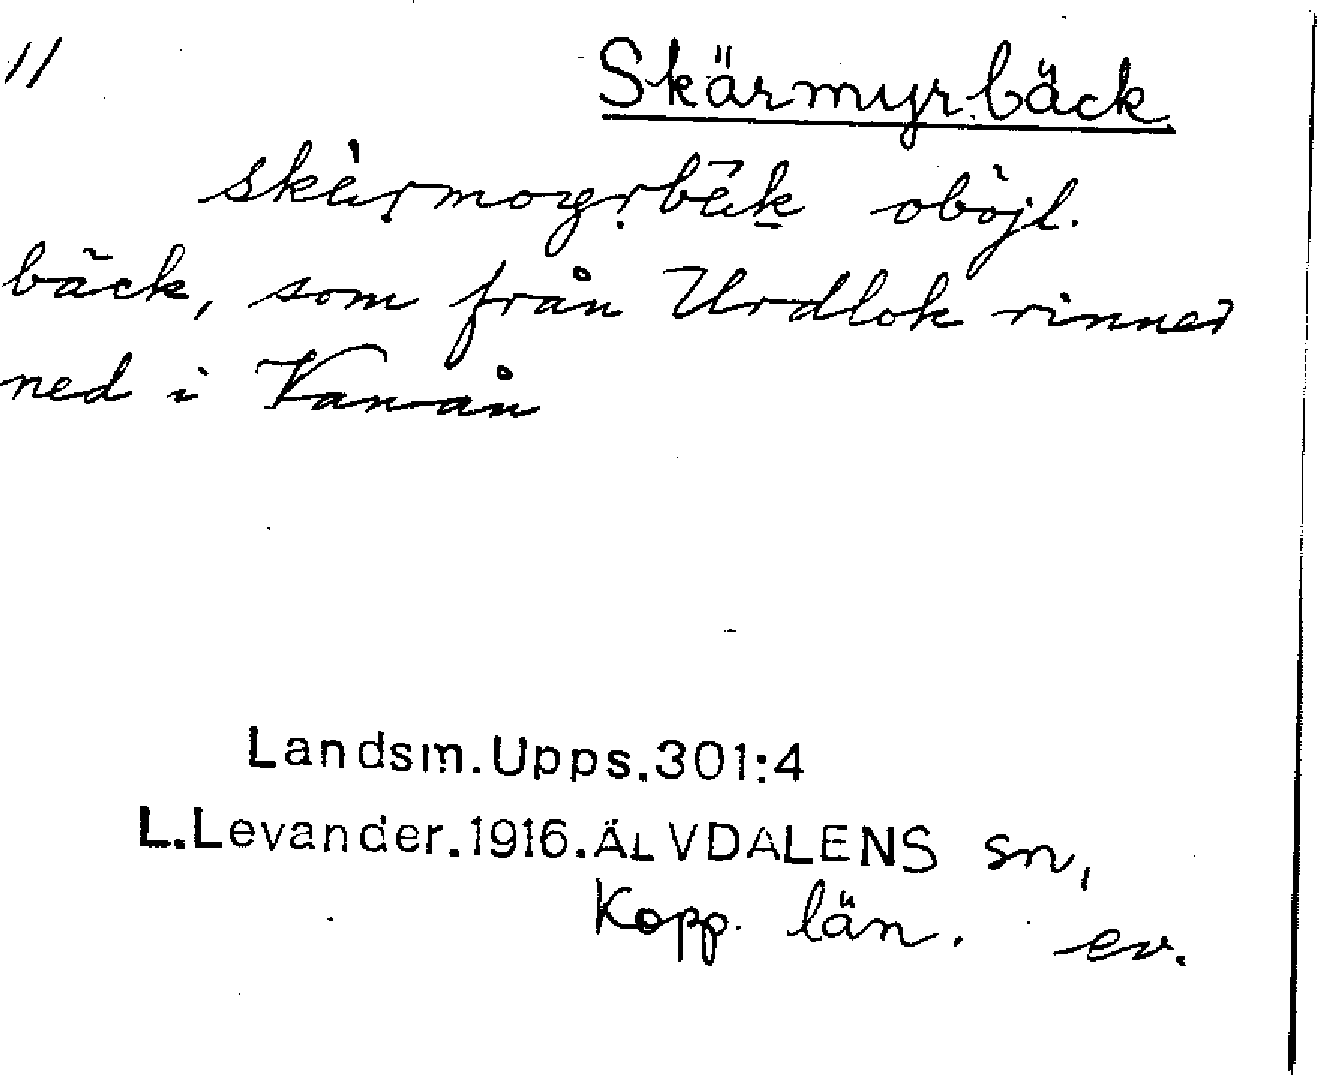 11 Skärmyrbäck
skèrmoyrbäk oböjl.
bäck, som från Urdlok rinner
ned i Vanån
Landsm.Upps.301:4
L.Levander.1916.ÄLVDALENS sn,
Kopp. län. ev.